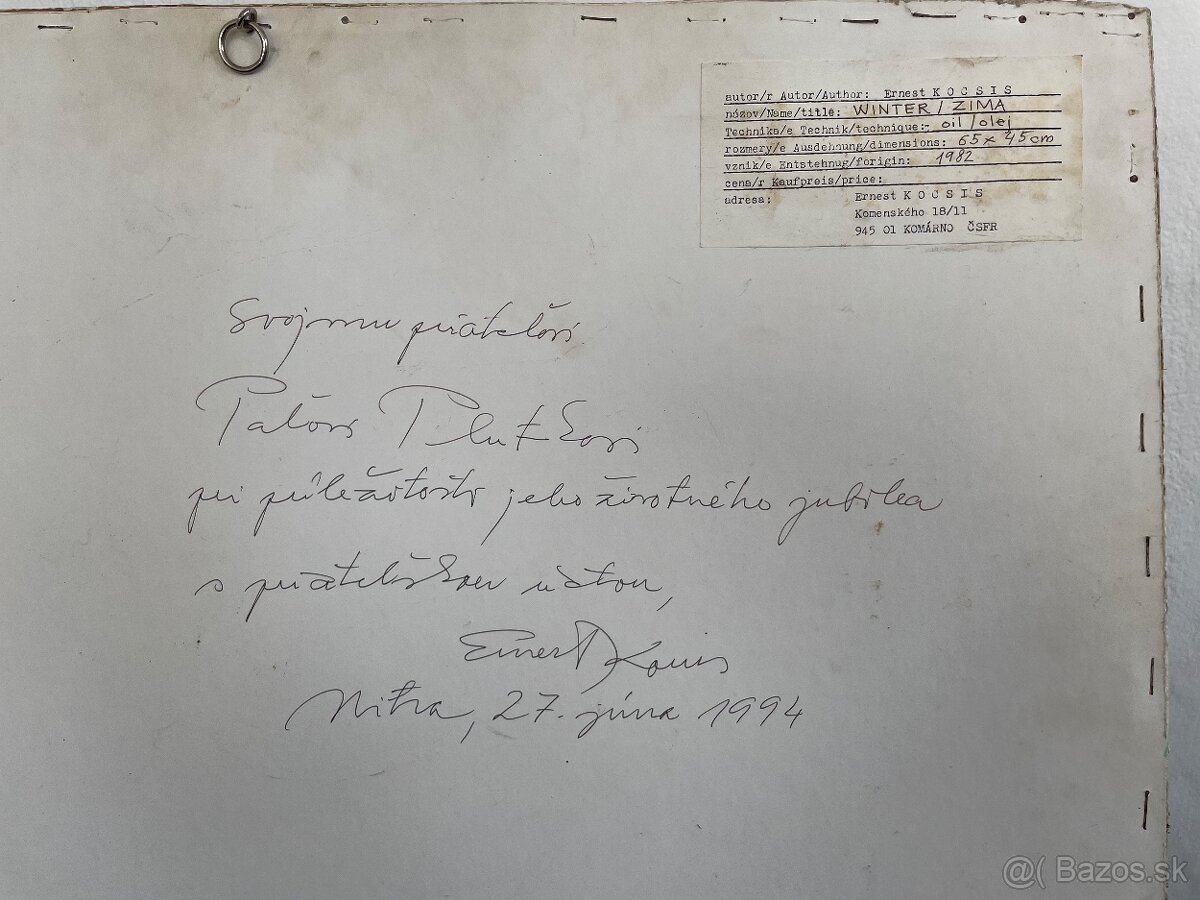 autor/r Autor/Author: Ernest K O C S I S
názov/Name/title: WINTER / ZIMA
Technika/e Technik/technique:- oil / olej
rozmery/e Ausdehnung/dimensions: 65 x 45 cm
vznik/e Entstehnug/forigin: 1982
cena/r Kaufpreis/price:
adresa: Ernest K O C S I S
Komenského 18/11
945 01 KOMÁRNO ČSFR
Svojmu priateľovi
Paľovi
pri príležitosti jeho životného jubilea
s priateľskou úctou,
Ernest Kocsis
Nitra, 27. júna 1994
@( Bazos.sk